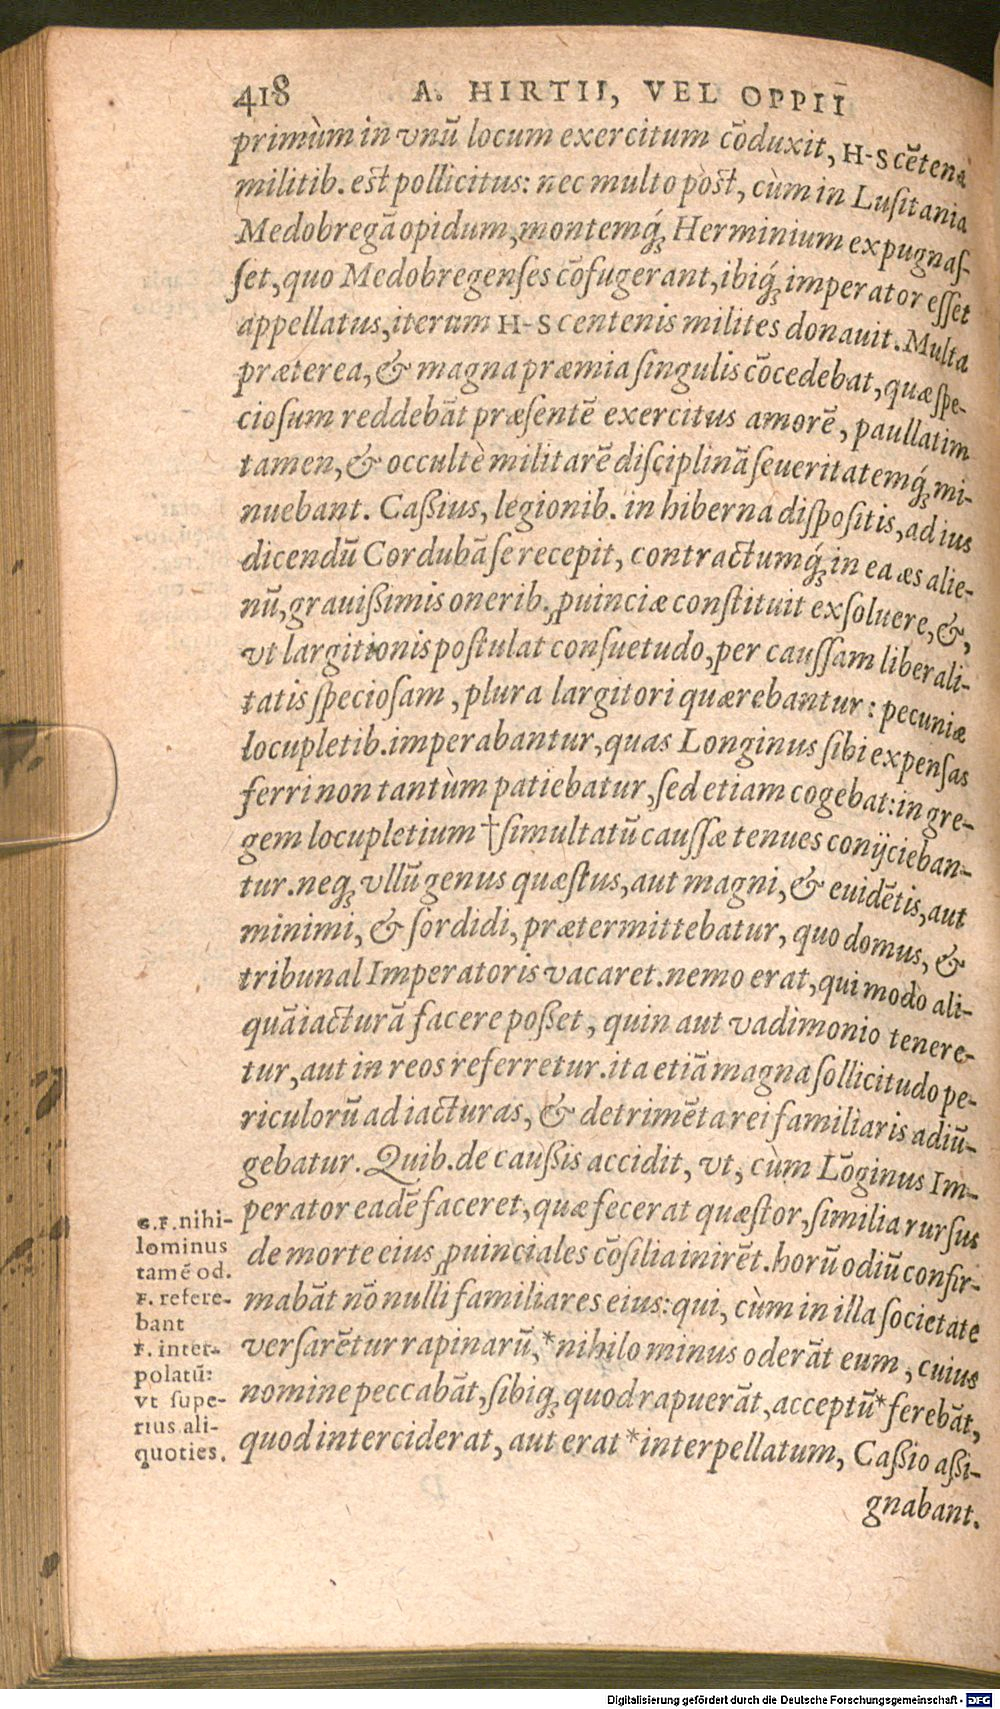 418 A. HIRTII, VEL OPPII
primùm in vnũ locum exercitum cõduxit, H-S cẽtena
militib. est pollicitus: nec multo pòst, cùm in Lusitania
Medobregã opidum, montemq́; Herminium expugnaſ-
ſet, quo Medobregenſes cõfugerant, ibiq́; imperator eſſet
appellatus, iterum H-S centenis milites donauit. Multa
præterea, & magna præmia ſingulis cõcedebat, quæ ſpe-
cioſum reddebãt præſentẽ exercitus amorẽ, paullatim
tamen, & occultè militarẽ diſciplinã ſeueritatemq́; mi-
nuebant. Caßius, legionib. in hiberna diſpoſitis, ad ius
dicendũ Cordubã ſe recepit, contractumq́; in ea æs alie-
nũ, grauißimis onerib. ꝓuinciæ conſtituit exſoluere, &,
vt largitionis poſtulat conſuetudo, per cauſſam liberali-
tatis ſpecioſam, plura largitori quærebantur: pecuniæ
locupletib. imperabantur, quas Longinus ſibi expenſas
ferri non tantùm patiebatur, ſed etiam cogebat: in gre-
gem locupletium † ſimultatũ cauſſæ tenues conijcieban-
tur. neq; vllũ genus quæſtus, aut magni, & euidẽtis, aut
minimi, & ſordidi, prætermittebatur, quo domus, &
tribunal Imperatoris vacaret. nemo erat, qui modo ali-
quã iacturã facere poßet, quin aut vadimonio tenere-
tur, aut in reos referretur. ita etiã magna ſollicitudo pe-
riculorũ ad iacturas, & detrimẽta rei familiaris adiũ-
gebatur. Quib. de caußis accidit, vt, cùm Lõginus Im-
perator eadẽ faceret, quæ fecerat quæſtor, ſimilia rurſus
de morte eius ꝓuinciales cõſilia inirẽt. horũ odiũ confir-
mabãt nõnulli familiares eius: qui, cùm in illa ſocietate
verſarẽtur rapinarũ, *nihilo minus oderãt eum, cuius
nomine peccabãt, ſibiq; quod rapuerãt, acceptũ *ferebãt,
quod interciderat, aut erat *interpellatum, Caßio aßi-
gnabant.
G.F. nihi-
lominus
tamẽ od.
F. refere-
bant
F. inter-
polatũ:
vt ſupe-
rius ali-
quoties.
Digitalisierung gefördert durch die Deutsche Forschungsgemeinschaft - DFG